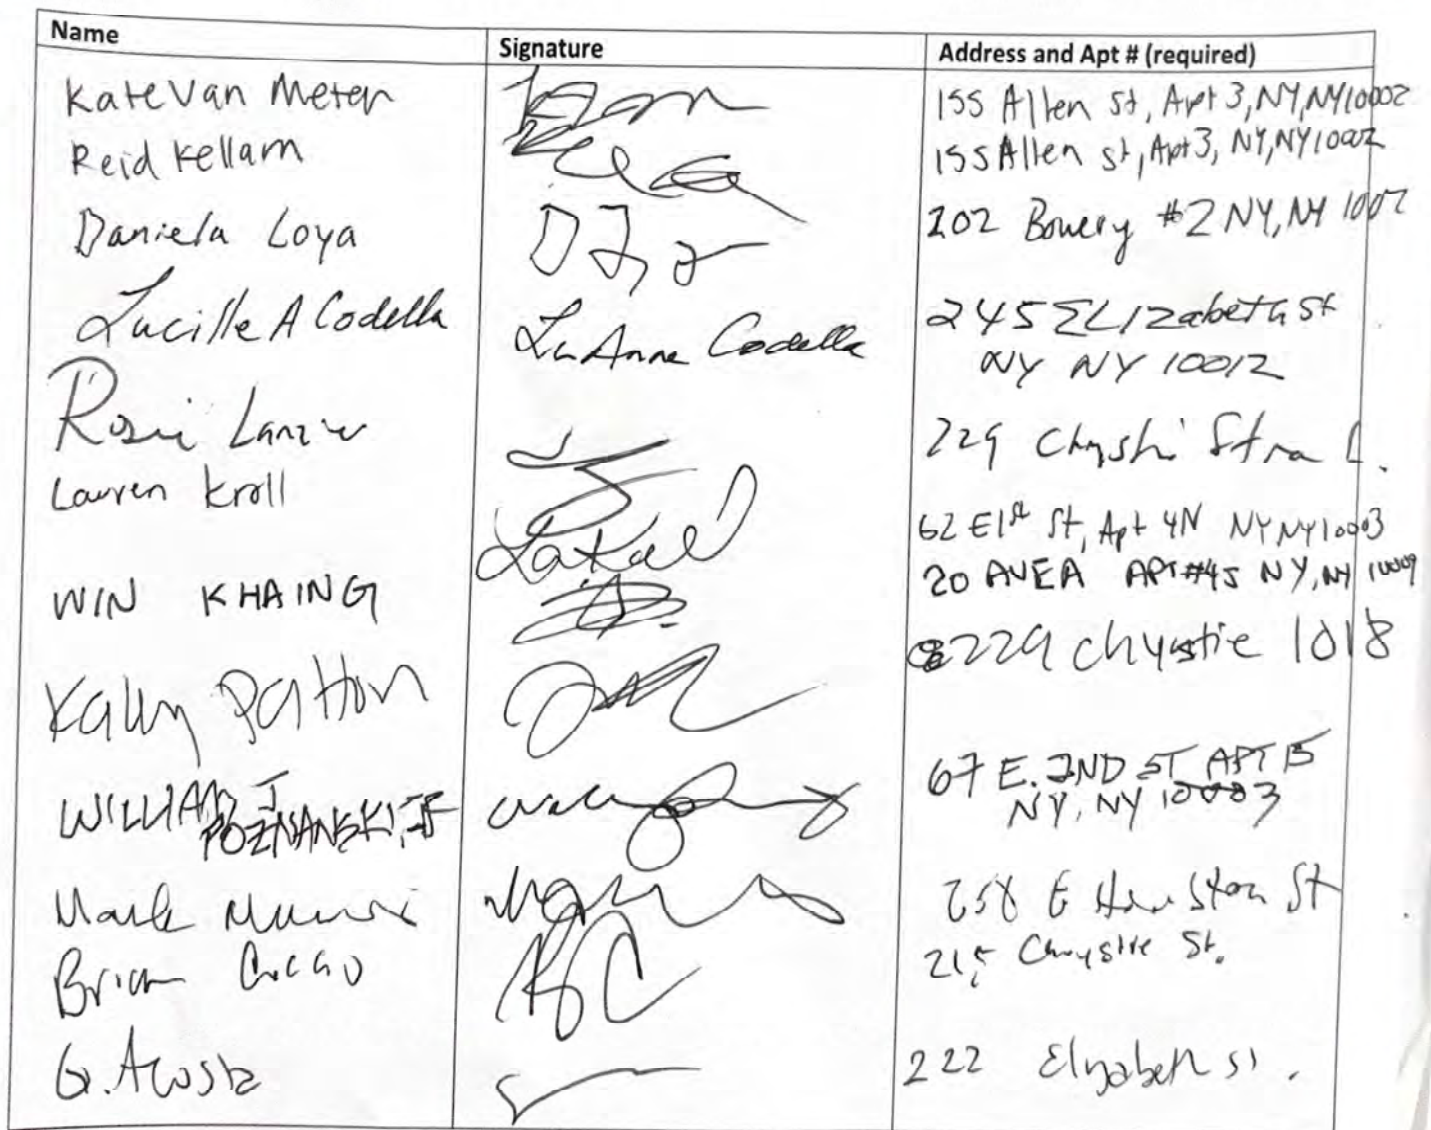 Name Signature Address and Apt # (required)
Kate Van Meter 155 Allen St, Apt 3, NY, NY 10002
Reid Kellam 155 Allen st, Apt 3, NY, NY 10002
Daniela Loya 202 Bowery #2 NY, NY 1002
Lucille A Codella LuAnne Codella 245 ELIzabeth St
NY NY 10012
Rosie 229
Lauren Kroll 62 E 1st St, Apt 4N NY NY 10003
WIN KHAING 20 AVE A APT #45 NY, NY 10009
Kally Patton 229 Chystie 1018
WILLIAM J 67 E. 2ND ST APT 15
POZNANSKI, JR NY, NY 10003
Mark 258 E Houston St
Brian 215 Chrystie St.
G. Acosta 222 Elizabeth St.